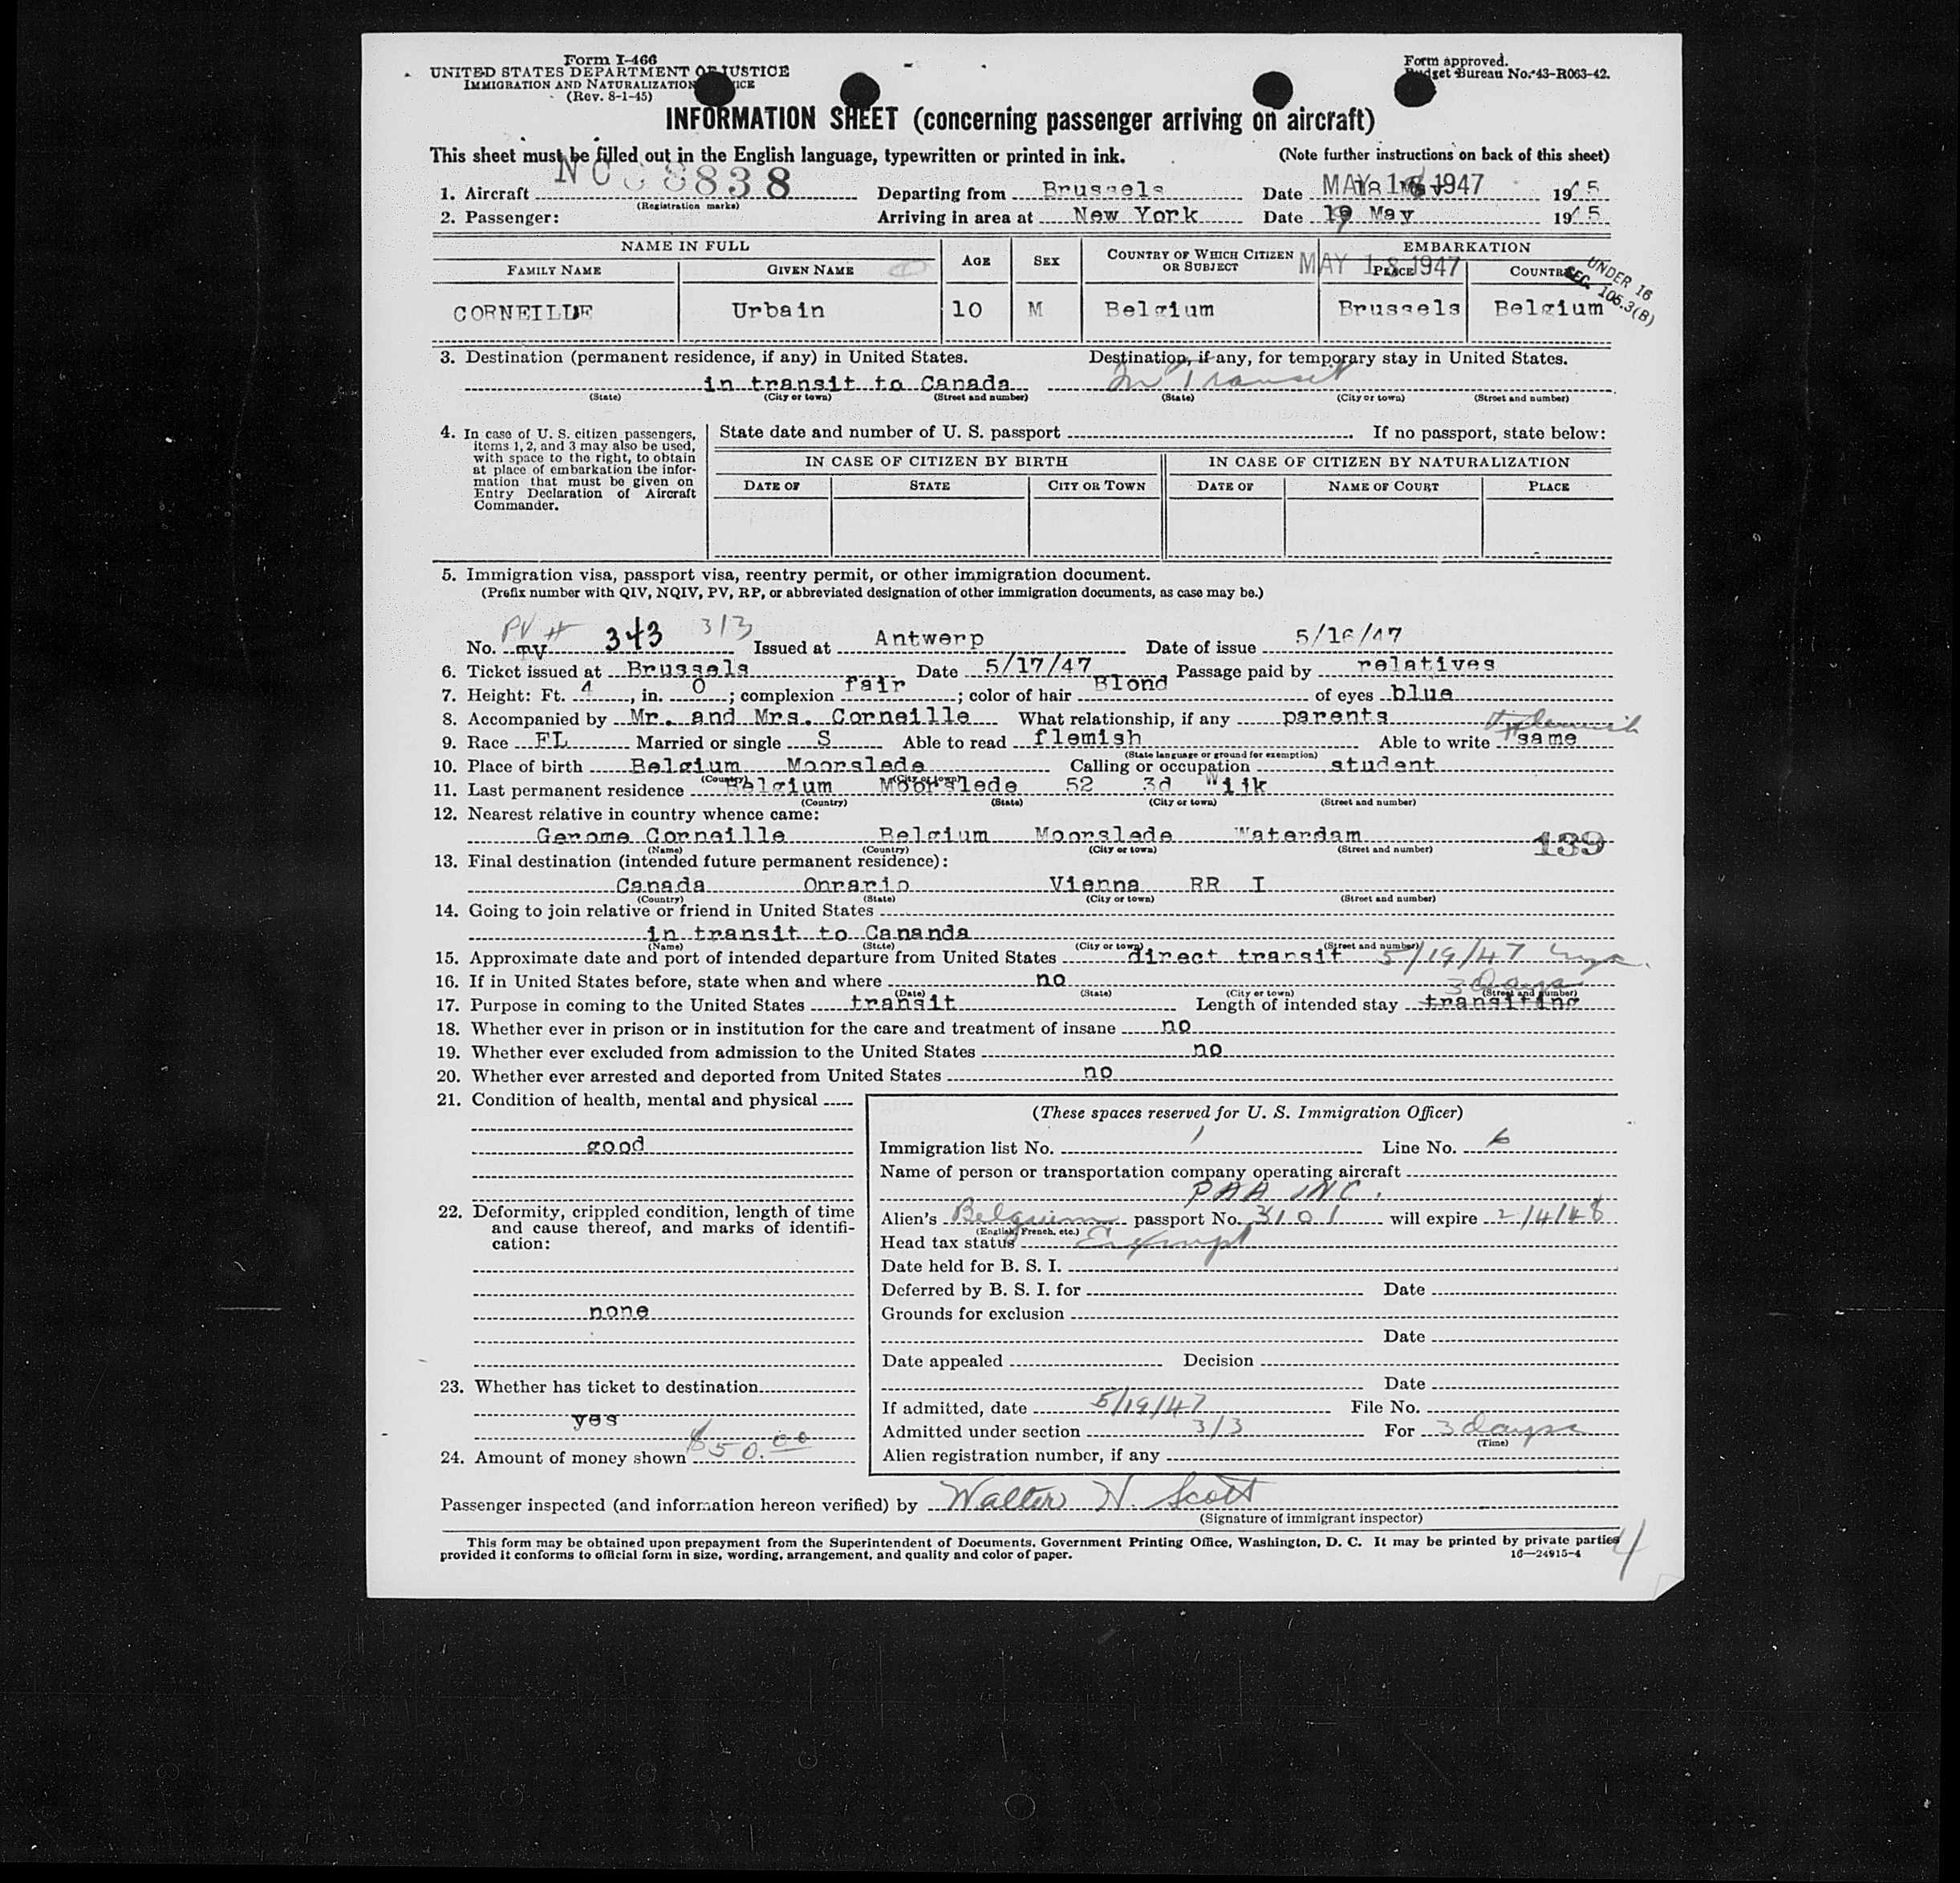 Form I-466
UNITED STATES DEPARTMENT OF JUSTICE
IMMIGRATION AND NATURALIZATION
(Rev. 8-1-45)
Form approved.
Budget Bureau No. 43-R063-42.
INFORMATION SHEET (concerning passenger arriving on aircraft)
This sheet must be filled out in the English language, typewritten or printed in ink. (Note further instructions on back of this sheet)
1. Aircraft 8838 Departing from Brussels Date MAY 18 1947 1945
(Registration marks)
2. Passenger: Arriving in area at New York Date 19 May 1945
NAME IN FULL AGE SEX COUNTRY OF WHICH CITIZEN OR SUBJECT EMBARKATION
FAMILY NAME GIVEN NAME MAY 18 1947 PLACE COUNTRY
UNDER 16
SEC. 105.3(B)
CORNEILLE Urbain 10 M Belgium Brussels Belgium
3. Destination (permanent residence, if any) in United States. Destination, if any, for temporary stay in United States.
in transit to Canada In Transit
(State) (City or town) (Street and number) (State) (City or town) (Street and number)
4. In case of U. S. citizen passengers, items 1, 2, and 3 may also be used, with space to the right, to obtain at place of embarkation the information that must be given on Entry Declaration of Aircraft Commander.
State date and number of U. S. passport If no passport, state below:
IN CASE OF CITIZEN BY BIRTH IN CASE OF CITIZEN BY NATURALIZATION
DATE OF STATE CITY OR TOWN DATE OF NAME OF COURT PLACE
5. Immigration visa, passport visa, reentry permit, or other immigration document.
(Prefix number with QIV, NQIV, PV, RP, or abbreviated designation of other immigration documents, as case may be.)
No. PV # 343 3/3 Issued at Antwerp Date of issue 5/16/47
6. Ticket issued at Brussels Date 5/17/47 Passage paid by relatives
7. Height: Ft. 4, in. 0; complexion fair; color of hair Blond of eyes blue
8. Accompanied by Mr. and Mrs. Corneille What relationship, if any parents
9. Race FL Married or single S Able to read flemish Able to write same
(State language or ground for exemption)
10. Place of birth Belgium Moorslede Calling or occupation student
(Country) (City or town)
11. Last permanent residence Belgium Moorslede 52 3d Wijk
(Country) (State) (City or town) (Street and number)
12. Nearest relative in country whence came:
Gerome Corneille Belgium Moorslede Waterdam 139
(Name) (Country) (City or town) (Street and number)
13. Final destination (intended future permanent residence):
Canada Onrario Vienna RR I
(Country) (State) (City or town) (Street and number)
14. Going to join relative or friend in United States
in transit to Cananda
(Name) (State) (City or town) (Street and number)
15. Approximate date and port of intended departure from United States direct transit 5/19/47
16. If in United States before, state when and where no
(Date) (State) (City or town) (Street and number)
3 days
17. Purpose in coming to the United States transit Length of intended stay transiting
18. Whether ever in prison or in institution for the care and treatment of insane no
19. Whether ever excluded from admission to the United States no
20. Whether ever arrested and deported from United States no
21. Condition of health, mental and physical
good
22. Deformity, crippled condition, length of time and cause thereof, and marks of identification:
none
23. Whether has ticket to destination
yes
24. Amount of money shown $50.00
(These spaces reserved for U. S. Immigration Officer)
Immigration list No. 1 Line No. 6
Name of person or transportation company operating aircraft
PAA INC.
Alien's Belgium passport No. 3101 will expire 2/4/48
(English, French, etc.)
Head tax status Exempt
Date held for B. S. I.
Deferred by B. S. I. for Date
Grounds for exclusion
Date
Date appealed Decision
Date
If admitted, date 5/19/47 File No.
Admitted under section 3/3 For 3 days
(Time)
Alien registration number, if any
Passenger inspected (and information hereon verified) by Walter H. Scott
(Signature of immigrant inspector)
This form may be obtained upon prepayment from the Superintendent of Documents, Government Printing Office, Washington, D. C. It may be printed by private parties
provided it conforms to official form in size, wording, arrangement, and quality and color of paper. 16—24915-4
4